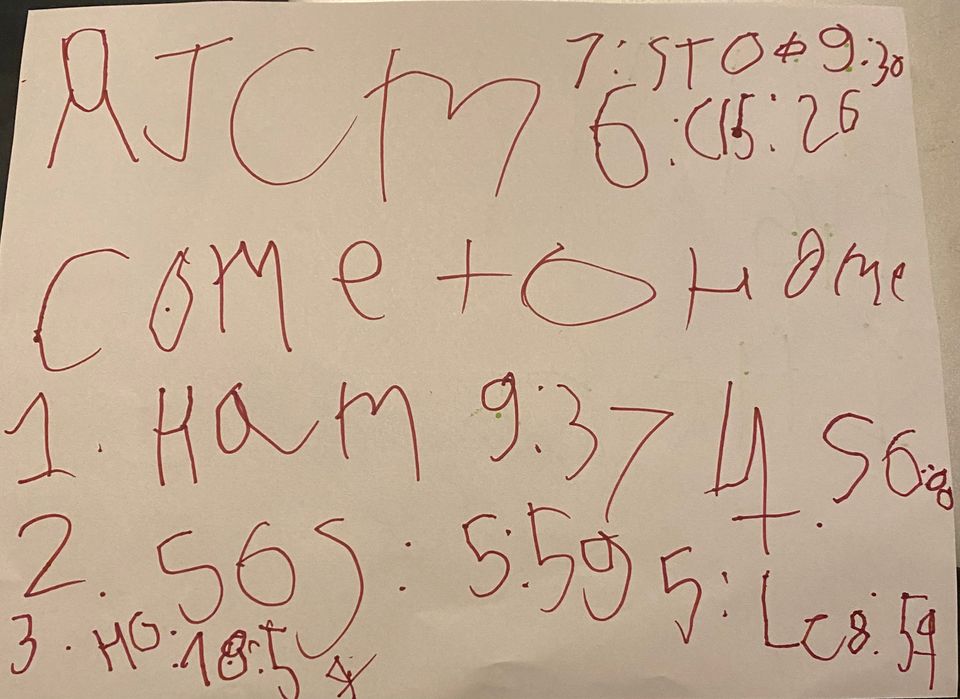 AJCM
7: STO 9:30
6: C15:26
COMe tO HOMe
1. HaM 9:37
4. S6:00
2. S6S: 5:59
5: LC8:59
3. HO:18:54